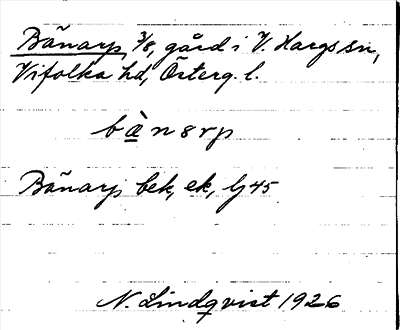 Bänarp, 3/8, gård i V. Hargs sn,
Vifolka hd, Österg. l.
bànarp
Bänarp bek, ek, lj 45
N. Lindqvist 1926